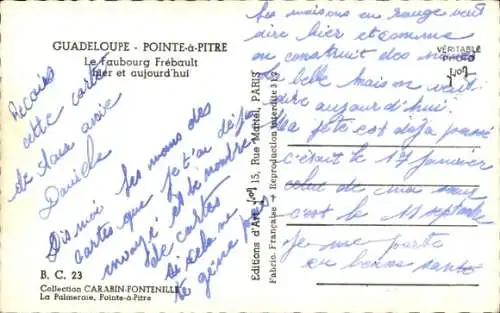 GUADELOUPE - POINTE-à-PITRE
Le faubourg Frébault
hier et aujourd'hui
cette carte
de ton amie
Danièle
Dis moi les noms des
cartes que je t'ai déjà
envoyé et le nombre
de cartes
si cela ne
te gêne pas
B. C. 23
Collection CARABIN-FONTENILLE
La Palmeraie, Pointe-à-Pitre
Editions d'Art 15, Rue Martel, PARIS
Fabric. Française - Reproduction interdite
VÉRITABLE
PHOTO
les maisons en rouge veut
dire hier et comme
on construit des
belle maison veut
dire aujourd'hui.
Ma fête est déjà passé
c'était le 17 janvier
celui de ma
c'est le 11 septembre
Je me porte
en bonne santé